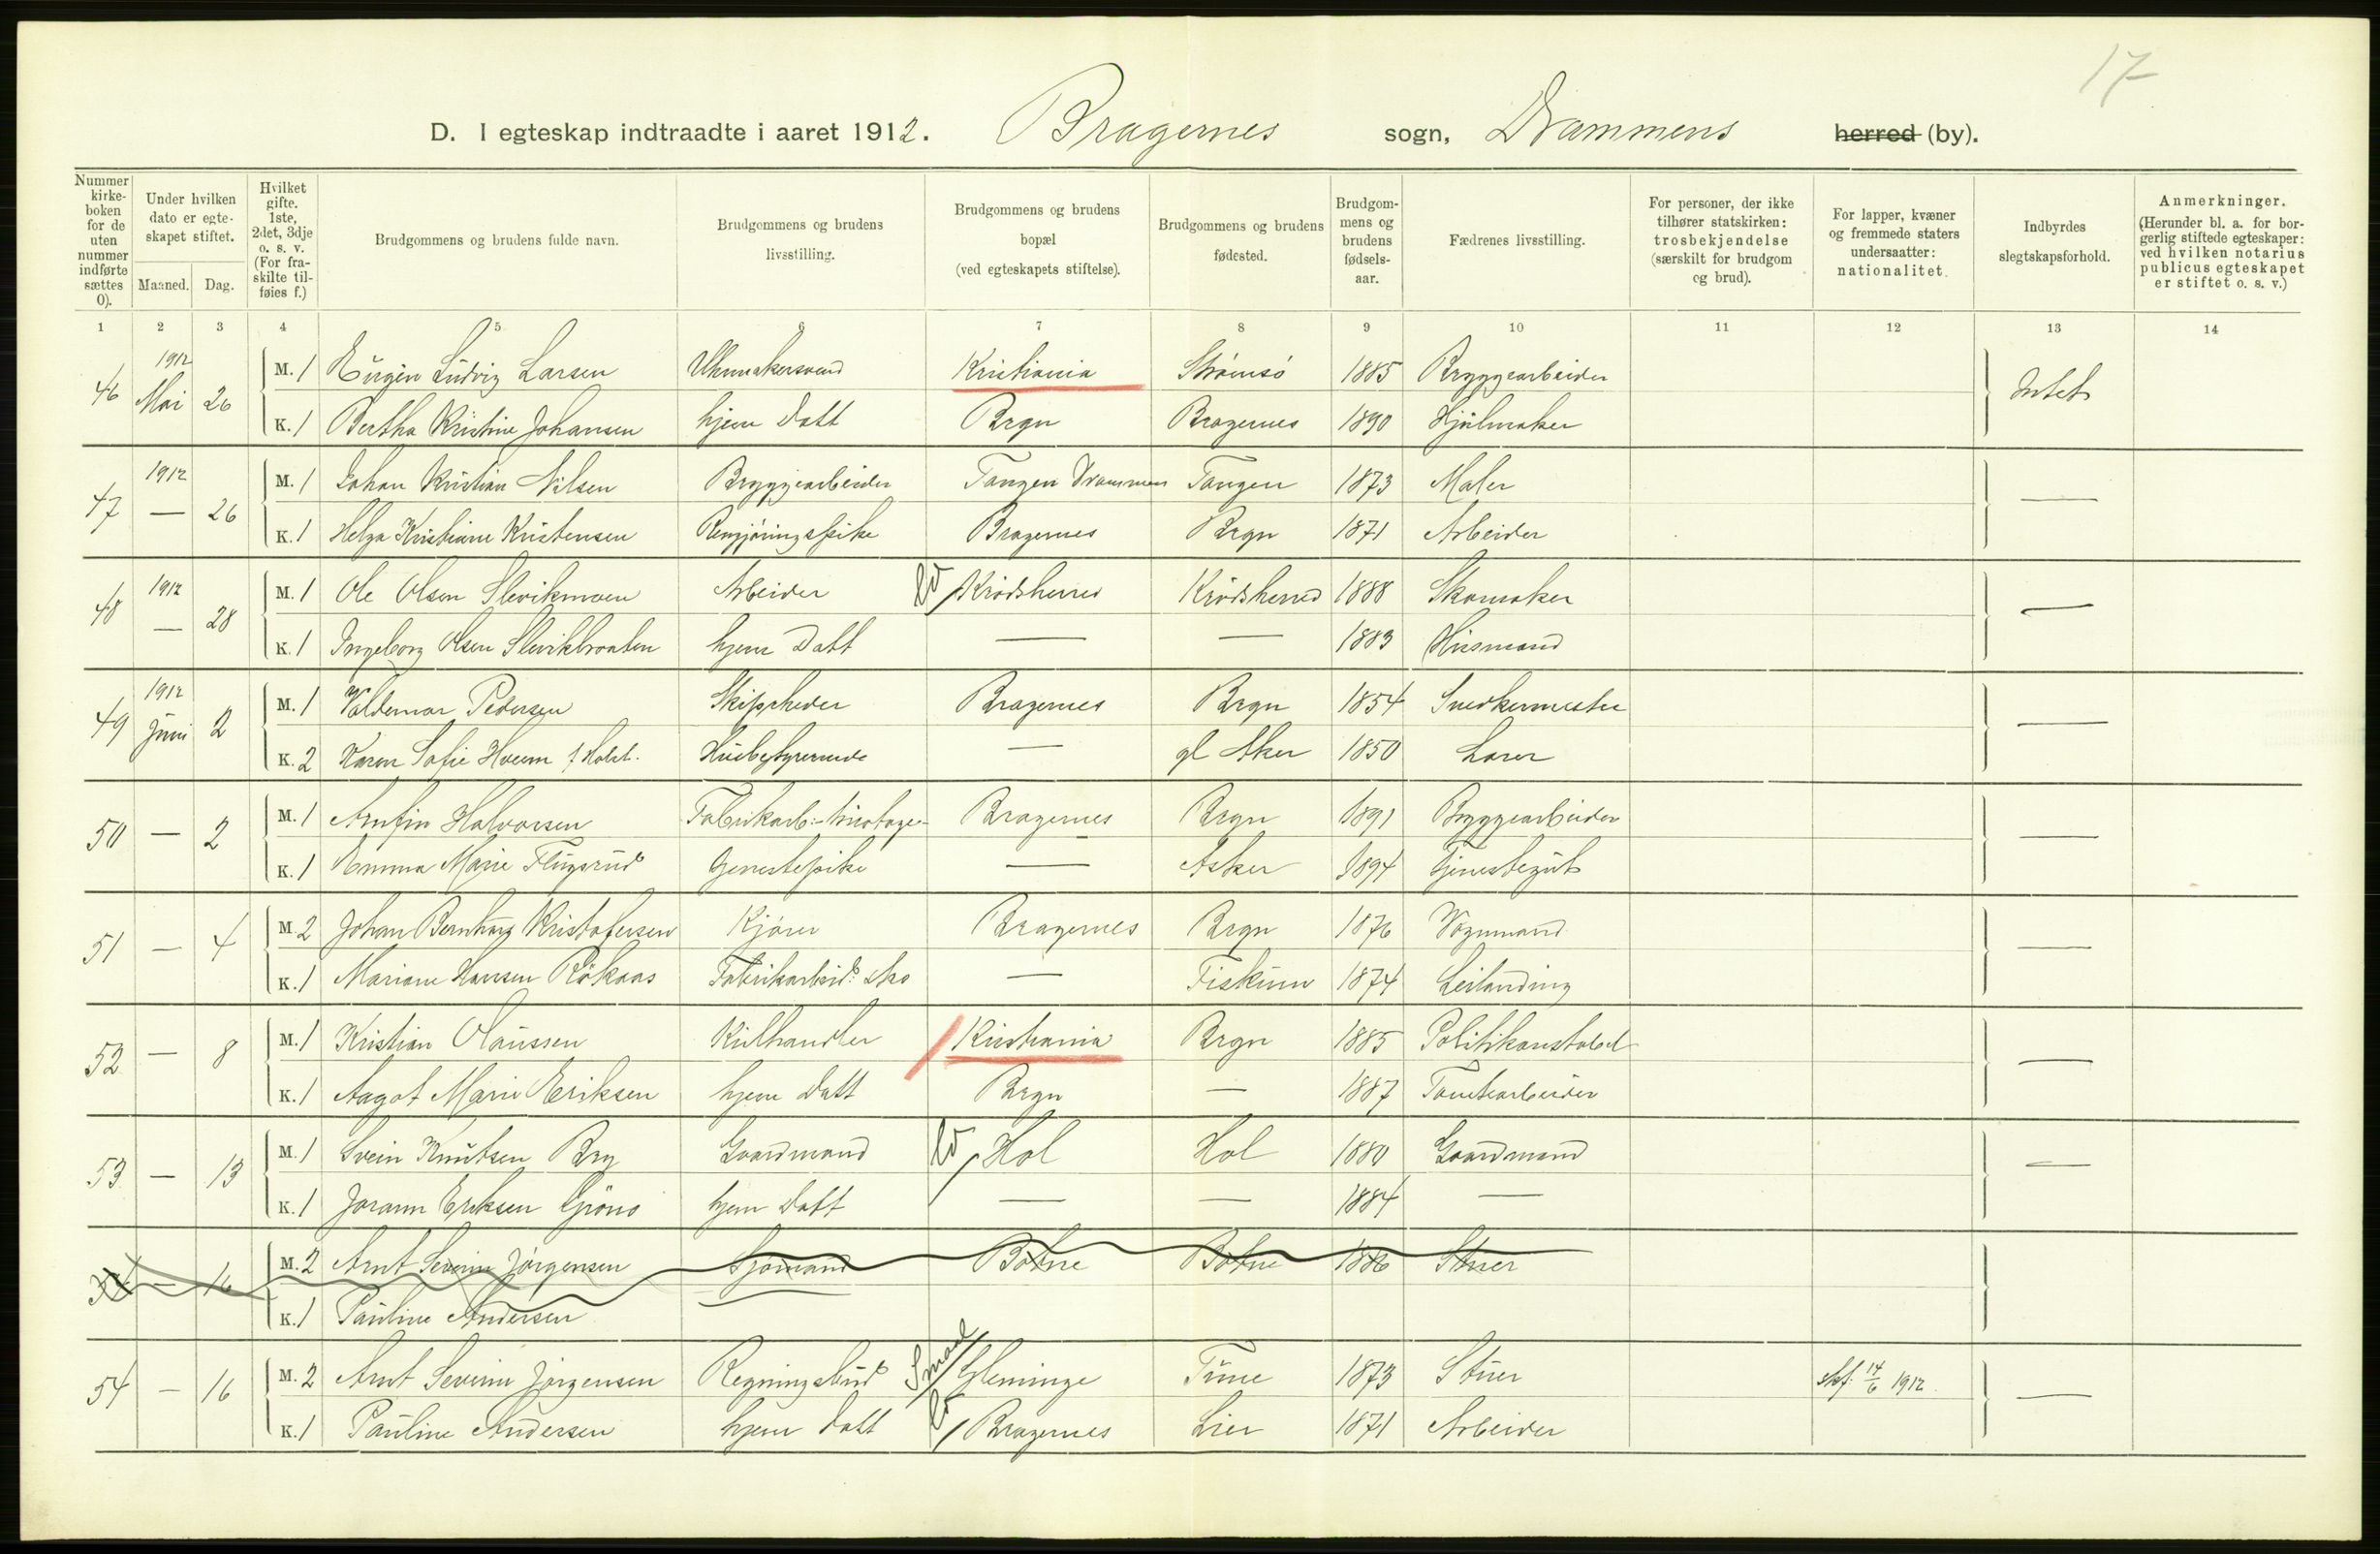 17
D. I egteskap indtraadte i aaret 1912. Bragernes sogn, Drammens herred (by).
Nummer kirke-boken for de uten nummer indførte sættes 0).
Under hvilken dato er egte-skapet stiftet.
Maaned. Dag.
Hvilket gifte. 1ste, 2det, 3dje o. s. v. (For fra-skilte til-føies f.)
Brudgommens og brudens fulde navn.
Brudgommens og brudens livsstilling.
Brudgommens og brudens bopæl (ved egteskapets stiftelse).
Brudgommens og brudens fødested.
Brudgom-mens og brudens fødsels-aar.
Fædrenes livsstilling.
For personer, der ikke tilhører statskirken: trosbekjendelse (særskilt for brudgom og brud).
For lapper, kvæner og fremmede staters undersaatter: nationalitet.
Indbyrdes slegtskapsforhold.
Anmerkninger. (Herunder bl. a. for bor-gerlig stiftede egteskaper: ved hvilken notarius publicus egteskapet er stiftet o. s. v.)
1 2 3 4 5 6 7 8 9 10 11 12 13 14
46 1912 Mai 26 M. 1 Eugen Ludvig Larsen Uhrmakersvend Kristiania Strømsø 1885 Bryggearbeider Intet
K. 1 Bertha Kristine Johansen hjem Datt Brgn Bragernes 1890 Hjulmaker
47 1912 — 26 M. 1 Johan Kristian Nilsen Bryggearbeider Tangen Drammen Tangen 1873 Maler —
K. 1 Helga Kristiane Kristensen Rengjøringspike Bragernes Brgn 1871 Arbeider
48 1912 — 28 M. 1 Ole Olsen Slevikmoen Arbeider Krødsherred Krødsherred 1888 Skomaker —
K. 1 Ingeborg Olsen Slevikbraaten hjem Datt — — 1883 Husmand
49 1912 Juni 2 M. 1 Valdemar Pedersen Skipsreder Bragernes Brgn 1854 Snedkermester —
K. 2 Karen Sofie Hveem f. Holst. Husbestyrerinde — gl Aker 1850 Lærer
50 — 2 M. 1 Arnfin Halvorsen Fabrikarb. Bragernes Brgn 1891 Bryggearbeider —
K. 1 Emma Marie Flugsrud Tjenestepike — Asker 1894 Tjenestegut
51 — 4 M. 2 Johan Bernhard Kristofersen Kjører Bragernes Brgn 1876 Vognmand —
K. 1 Mariane Hansen Røkaas Fabrikarbeid. Sko — Fiskum 1874 Leilending
52 — 8 M. 1 Kristian Olaussen Kulhandler Kristiania Brgn 1885 Politikonstabel —
K. 1 Aagot Marie Eriksen hjem Datt Brgn — 1887 Tomtearbeider
53 — 13 M. 1 Svein Knutsen Bry Gaardmand Hol Hol 1880 Gaardmand —
K. 1 Jorann Eriksen Gjøno hjem Datt — — 1884 —
54 — 16 M. 2 Arnt Severin Jørgensen Sjømand Botne Botne 1886 Stuer
K. 1 Pauline Andersen
54 — 16 M. 2 Arnt Severin Jørgensen Regningsbud Glemminge Tune 1873 Stuer 14/6 1912 —
K. 1 Pauline Andersen hjem Datt Bragernes Lier 1871 Arbeider